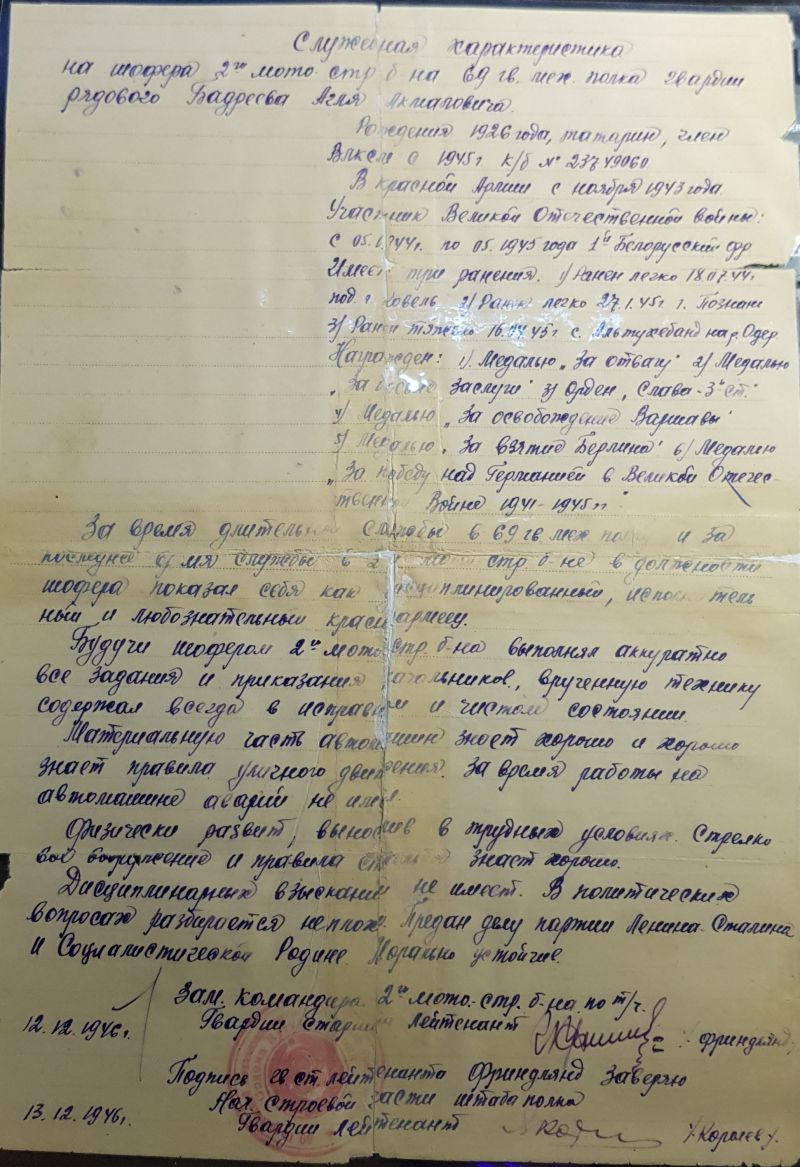 Служебная характеристика
на шофера 2го мото. стр. б-на 69 гв. мех. полка гвардии
рядового Бадреева Акмаловича.
Рождения 1926 года, татарин, член
ВЛКСМ с 1945 г. к/б № 23749060
В красной Армии с ноября 1943 года
Участник Великой Отечественной войны:
с 05.1944г. по 05.1945 года 1й Белорусский фр
Имеет три ранения. 1) Ранен легко 18.07.44г.
под г. Ковель 2) Ранен легко 27.1.45г г. Познан
3) Ранен тяжело 16.04.45г с. на р. Одер
Награжден: 1) Медалью „За отвагу" 2) Медалью
„За боевые заслуги" 3) Орден „Слава - 3й ст."
4) Медалью „За освобождение Варшавы"
5) Медалью „За взятие Берлина" 6) Медалью
„За победу над Германией в Великой Отечес-
твенной Войне 1941-1945 гг".
За время длительной службы в 69 гв мех полку и за
последнее время службы в 2м мото стр б-не в должности
шофера показал себя как дисциплинированный, исполнитель
ный и любознательный красноармеец.
Будучи шофером 2го мото стр. б-на выполнял аккуратно
все задания и приказания начальников, врученную технику
содержал всегда в исправном и чистом состоянии.
Материальную часть автомашин знает хорошо и хорошо
знает правила уличного движения. За время работы на
автомашине аварий не имел.
Физически развит, вынослив в трудных условиях. Стрелко
вое вооружение и правила стрельбы знает хорошо.
Дисциплинарных взысканий не имеет. В политических
вопросах разбирается неплохо. Предан делу партии Ленина-Сталина
и Социалистической Родине. Морально устойчив.
Зам. командира 2го мото-стр. б-на по т/ч.
12.12.1946г. Гвардии Старший Лейтенант /Фриндлянд/
Подпись гв ст. лейтенанта Фриндлянд Заверяю
Нач. строевой части штаба полка
13.12.1946г. Гвардии Лейтенант /Королев/.